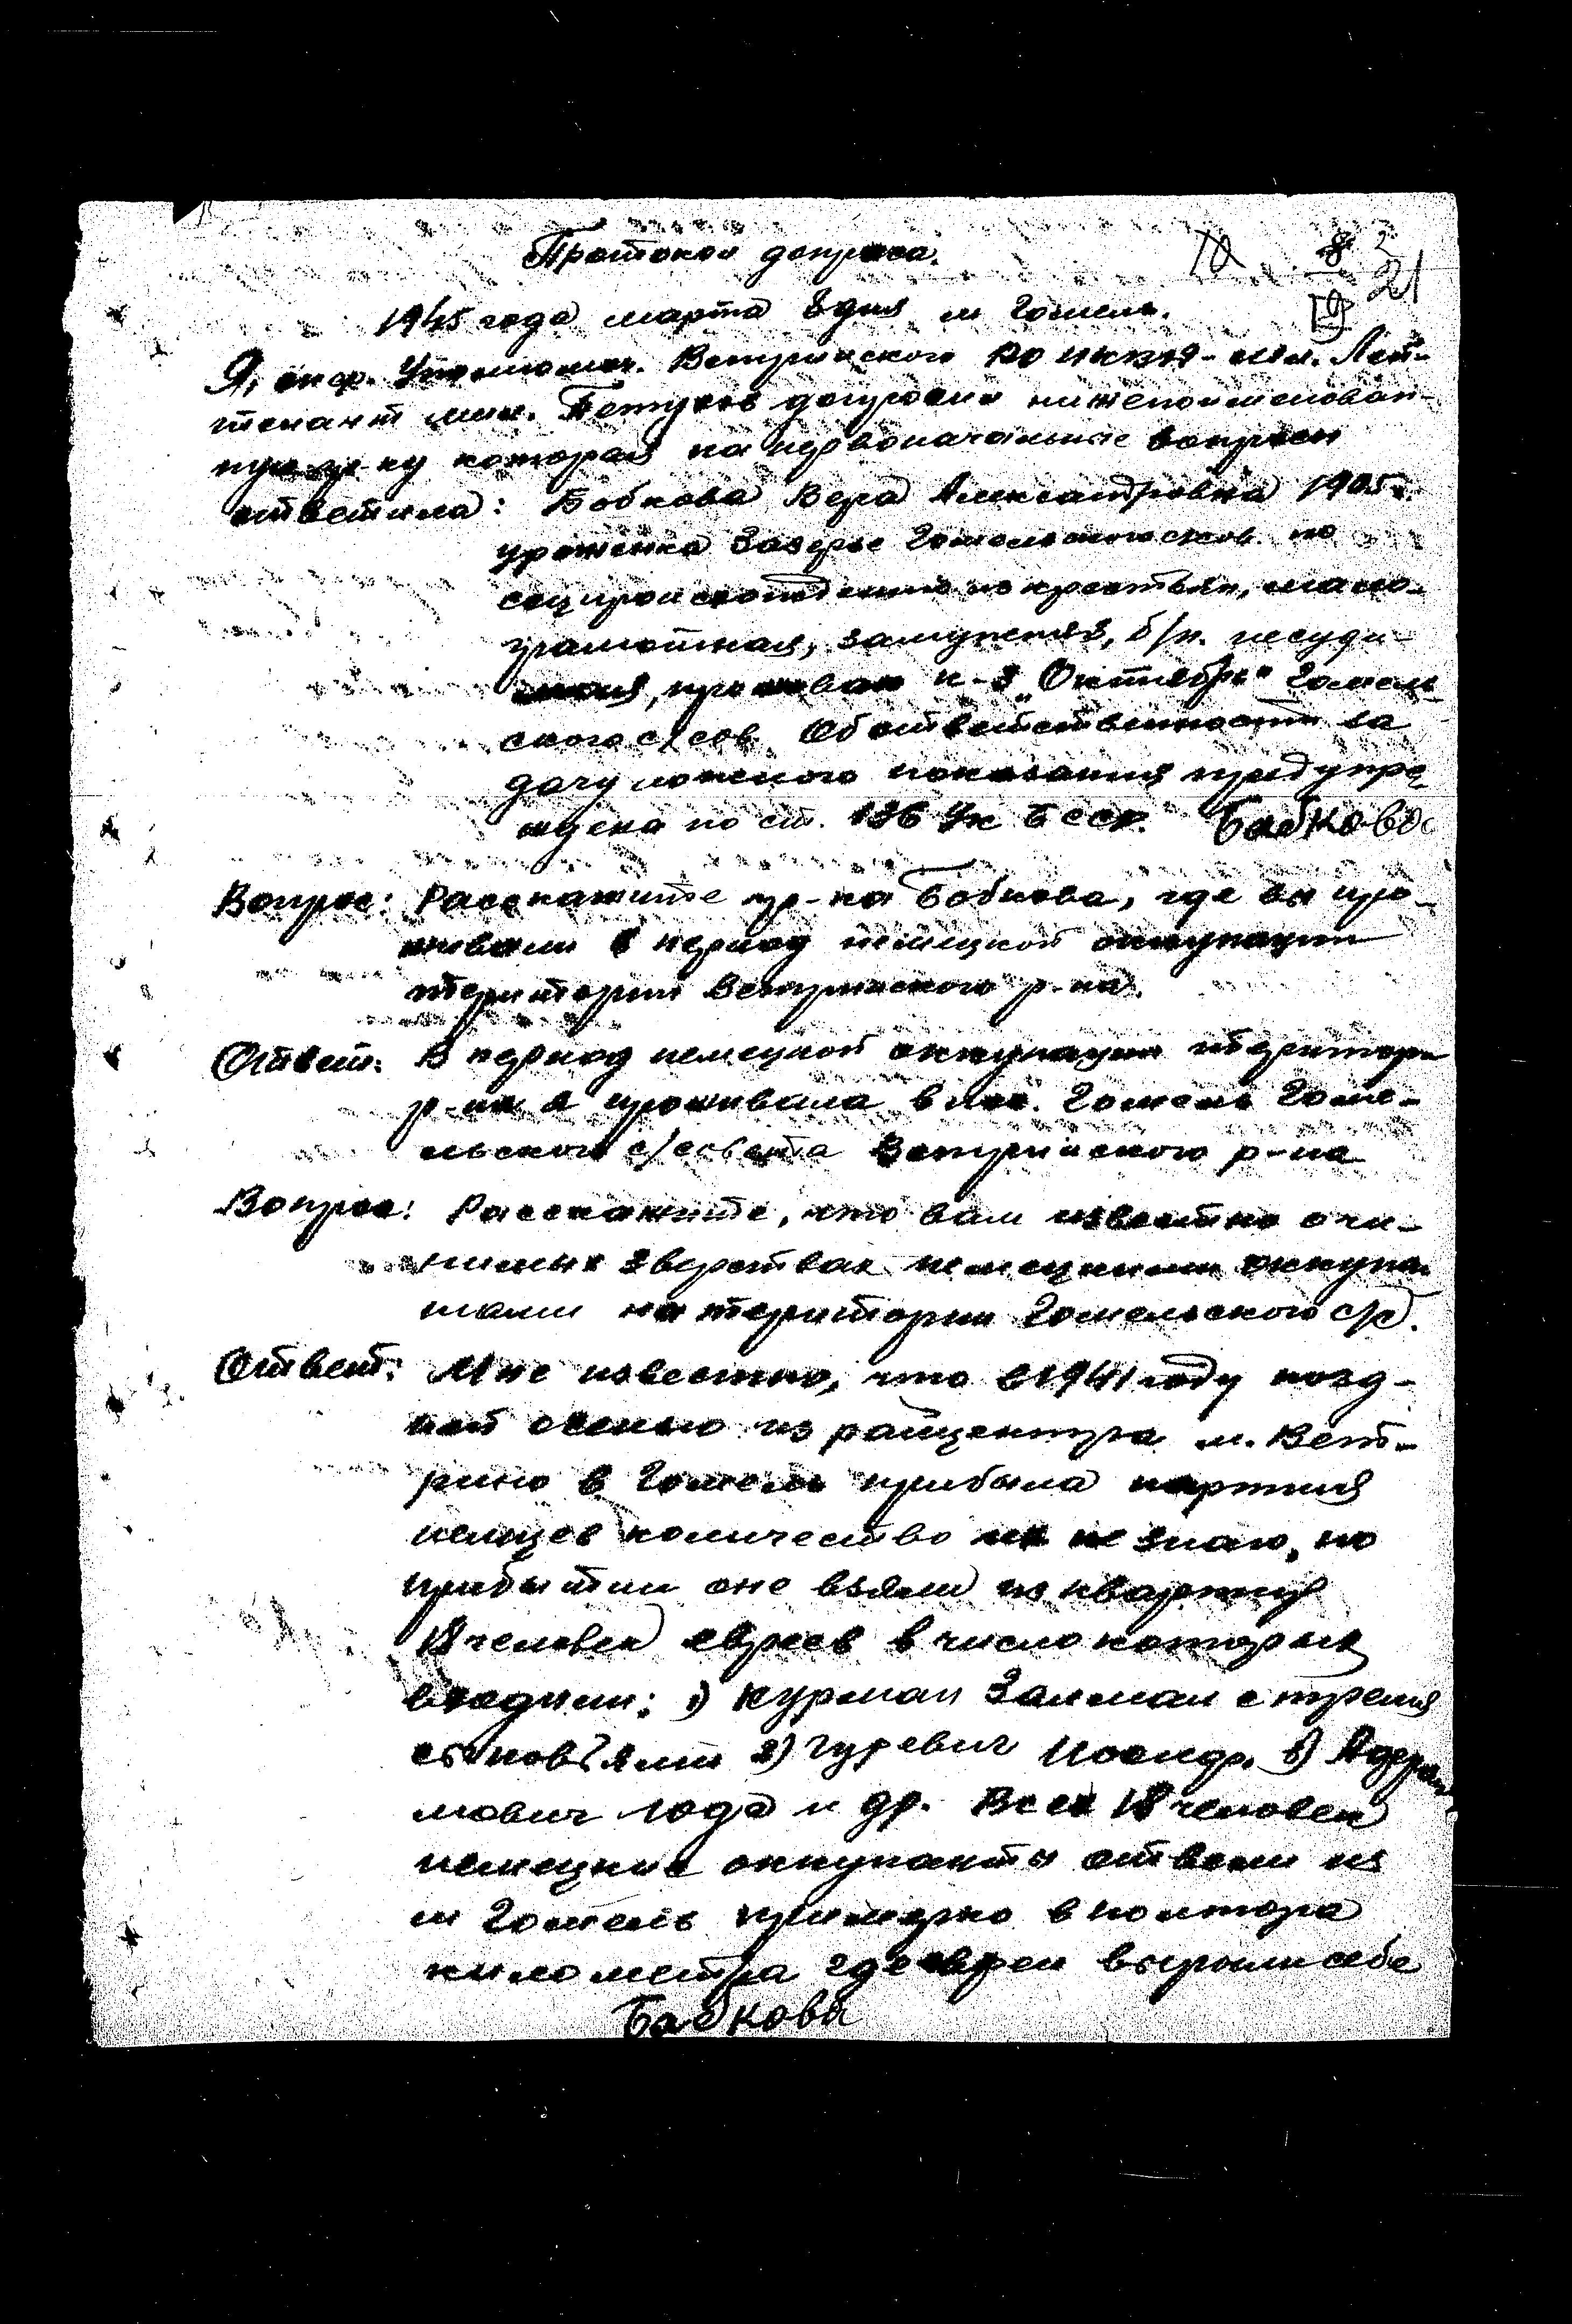 Протокол допроса.
8 3
21
19
1945 года марта 8 дня м Гомель.
Я, опер. Уполномоч. Ветринского РО НКВД - мл. Лей-
тенант мил. Петухов допросил нижепоименован-
ную гр-ку которая на первоначальные вопросы
ответила: Бобкова Вера Александровна 1905 г.
уроженка Заозерье Гомельского с/сов. по
соцпроисхождению из крестьян, мало-
грамотная, замужняя, б/п. несуди-
мая, прожива к-з „Октябрь" Гомель-
ского с/сов. Об ответственности за
дачу ложного показания предупре
ждена по ст. 136 Ук БССР. Бабкова
Вопрос: Расскажите гр-ка Бобкова, где вы про-
живали в период немецкой оккупации
територии Ветринского р-на.
Ответ: В период немецкой оккупации територи
р-на я проживала в Гомель Гоме-
льского с/совета Ветринского р-на
Вопрос: Расскажите, что вам известно о чи-
нимых зверствах немецкими оккупан
тами на територии Гомельского с/с.
Ответ: Мне известно, что в 1941 году позд-
ней осенью из райцентра м. Вет-
рино в Гомель прибыла партия
немцев количество их не знаю, по
прибытии оне взяли из квартир
18 человек евреев в число которых
входили: 1) Курман Залман с тремя
сыновьями 2) Гуревич 3)
мович Года и др. Всех 18 человек
немецкие оккупанты отвели из
м Гомель примерно в полтора
километра где евреи вырыли себе
Бабкова